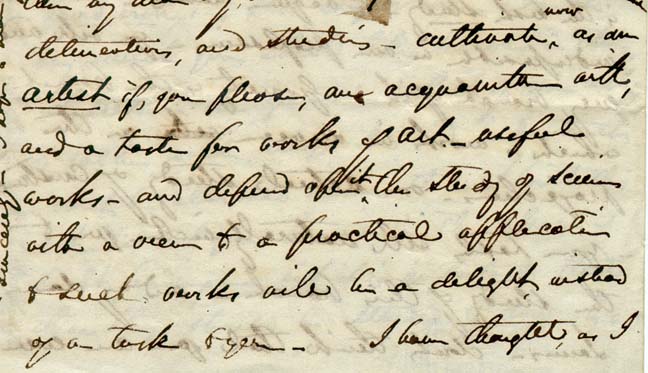 delineations, and studies - cultivate, now as an
artist if you please, an acquaintance with,
and a taste for works of art - useful
works - and depend upon it the study of science
with a view to a practical application
to such works will be a delight instead
of a task to you - I have thought, as I
sincerely - I hope